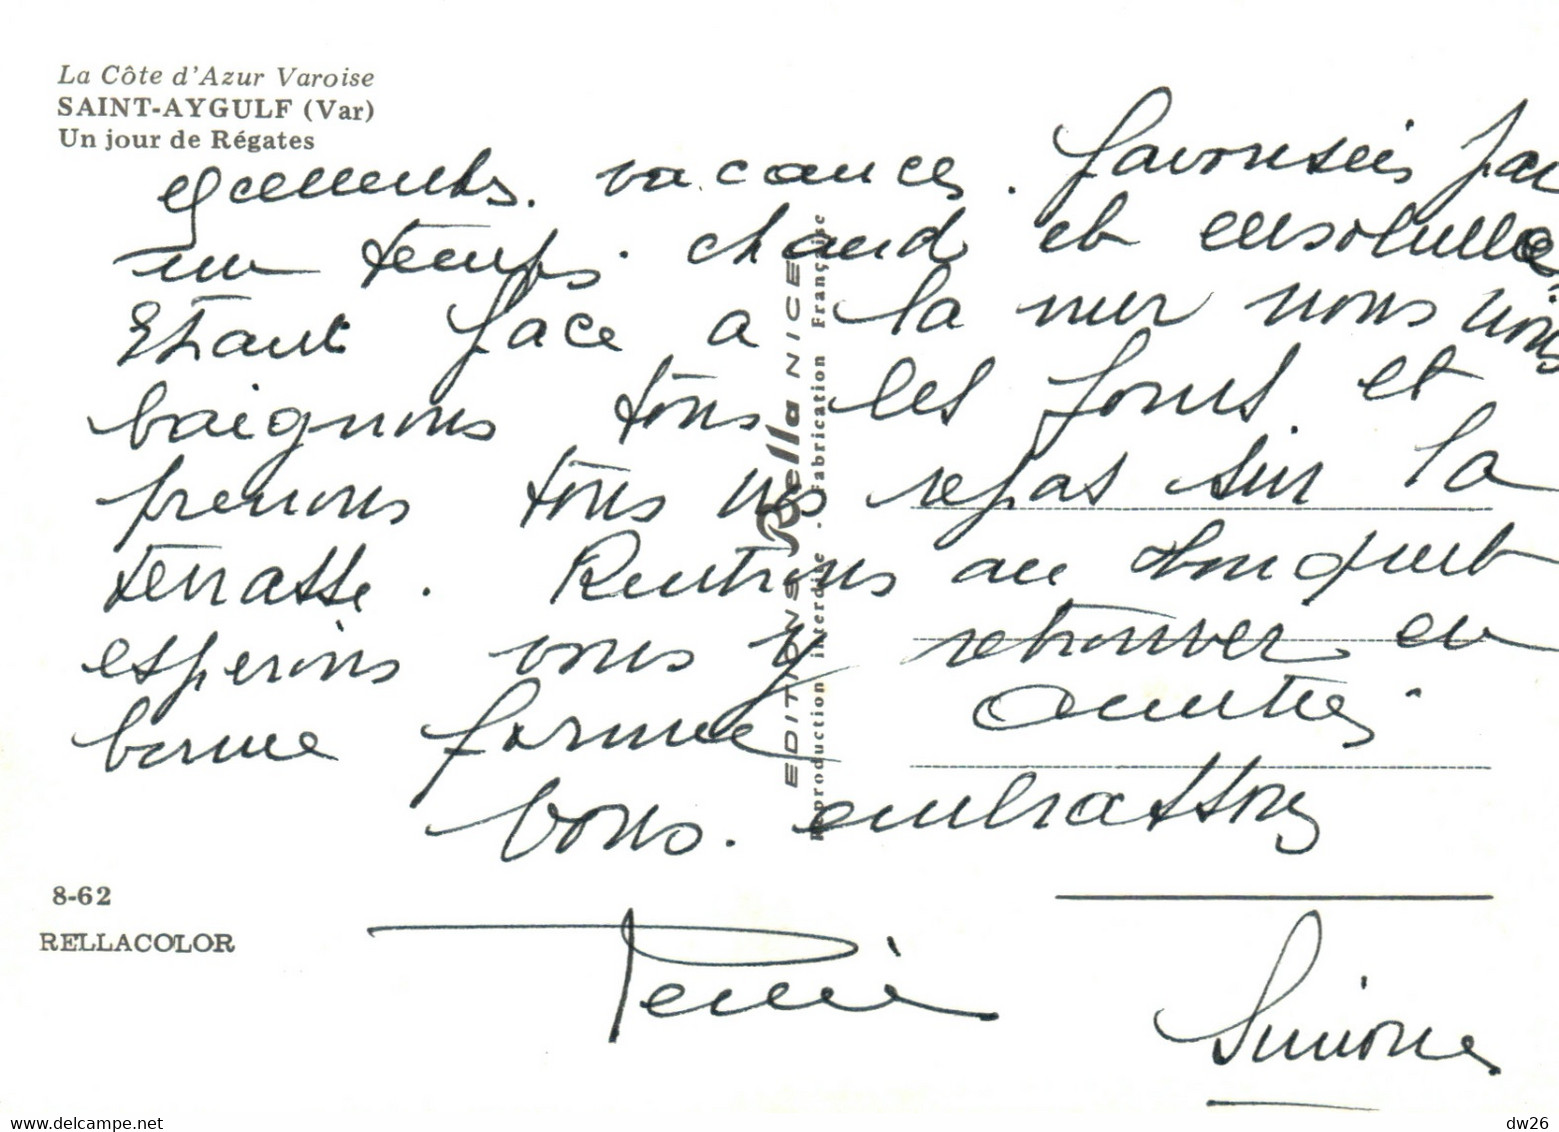 La Côte d'Azur Varoise
SAINT-AYGULF (Var)
Un jour de Régates
excellentes vacances. favorisées par
un temps. chaud et ensoleillé
Etant face a la mer nous nous
baignons tous les jours et
prenons tous nos repas sur la
terrasse. Rentrons au
espérons vous y retrouver en
bonne forme
Amitiés.
vous. embrassons
EDITIONS Rella NICE
Reproduction interdite - Fabrication Française
8-62
RELLACOLOR
Simone
delcampe.net
dw26